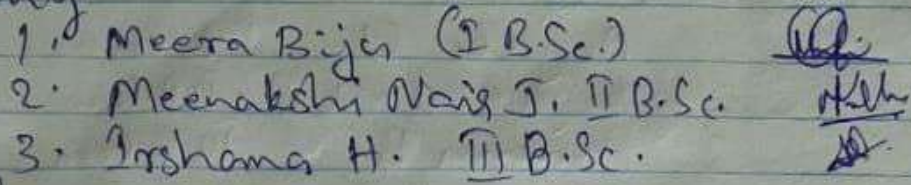 1. Meera Biju (I B.Sc.)
2. Meenakshi Nair J. II B.Sc.
3. Irshana H. III B.Sc.